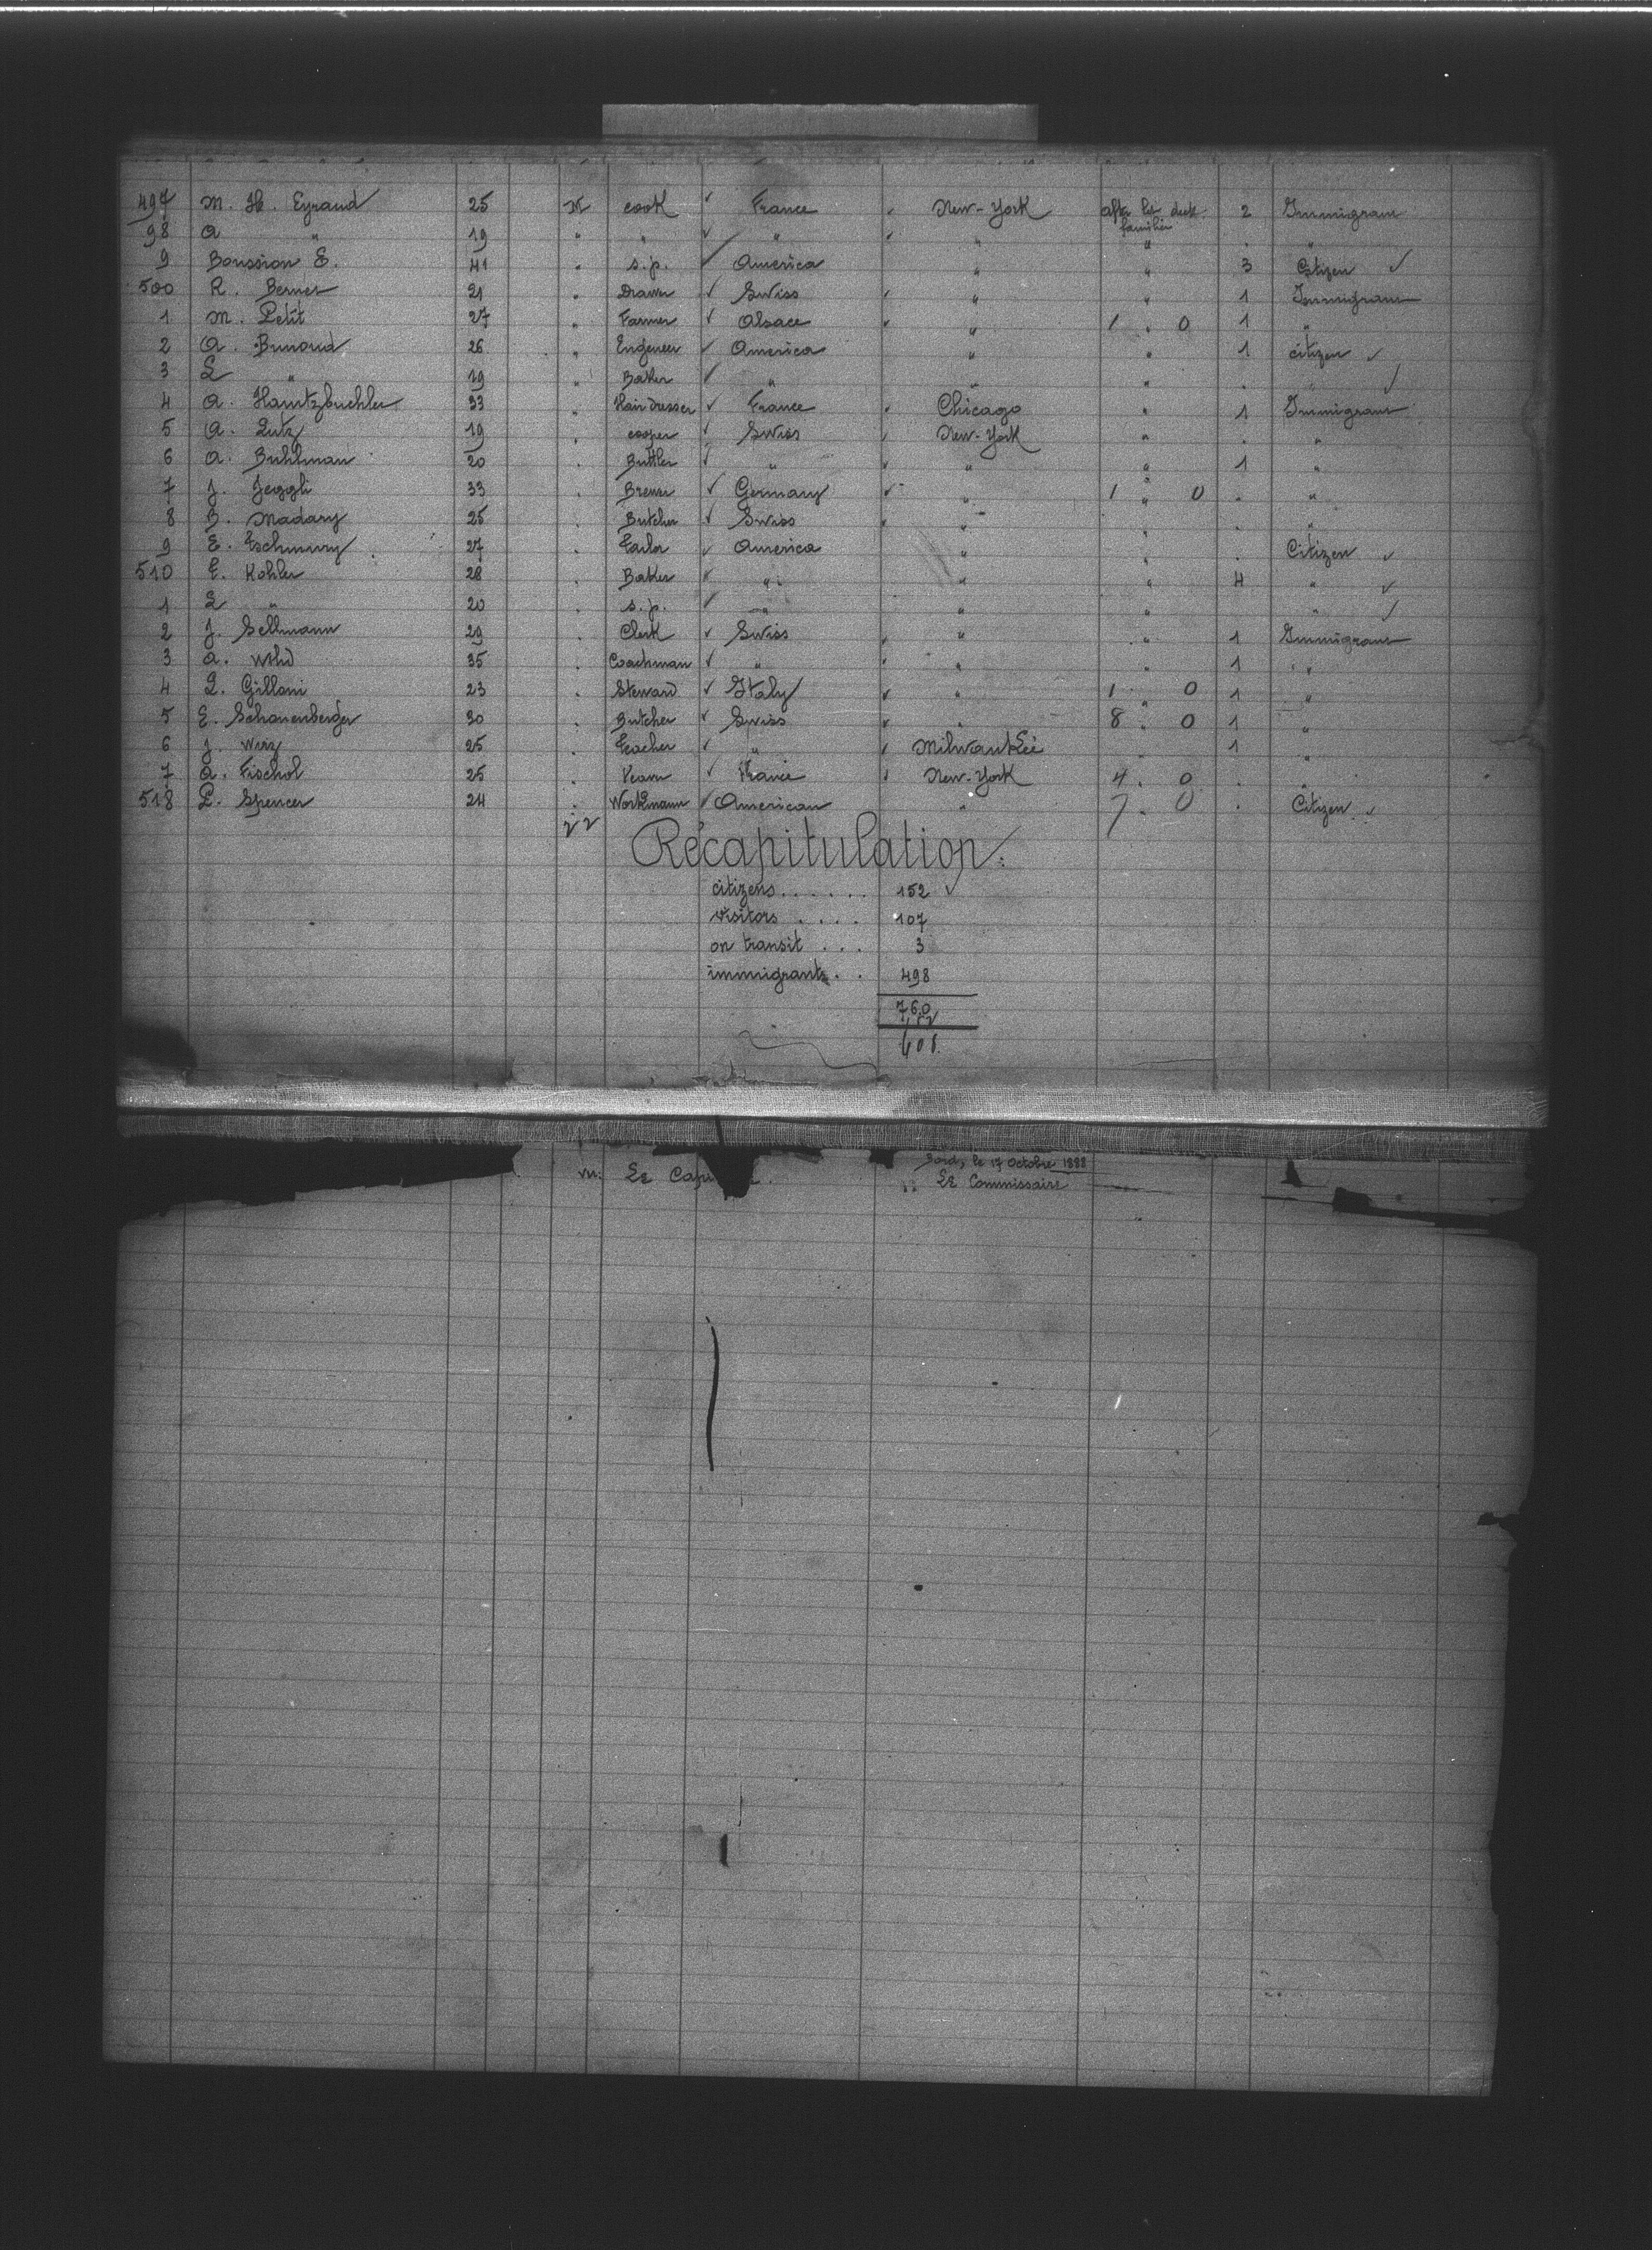 497 M. H. Eyraud 25 M cook ✓ France New-York aft. let deck 2 Immigrant
familier
98 A " 19 " " ✓ " " " . "
9 Boussion E. 41 " s.p. ✓ America " " 3 Citizen ✓
500 R. Berner 21 " Drawer ✓ Swiss " " 1 Immigrant
1 M. Petit 27 " Farmer ✓ Alsace " 1 . 0 1 "
2 A. Bunoud 26 " Engeneer ✓ America " " 1 citizen ✓
3 L " 19 " Baker ✓ " " " . " ✓
4 A. Hantzbuehler 33 " Hair Dresser ✓ France Chicago " 1 Immigrant
5 A. Lutz 19 . cooper ✓ Swiss New-York " . "
6 A. Buhlman 20 . Buttler ✓ " " " 1 "
7 J. Jeggli 33 . Brewer ✓ Germany " 1 " 0 . "
8 B. Madary 25 . Butcher ✓ Swiss " " . "
9 E. 27 . Tailor ✓ America " " . Citizen ✓
510 E. Kohler 28 . Baker ✓ " " " 4 " ✓
1 L " 20 . s.p. ✓ " " " " ✓
2 J. Sellmann 29 . Clerk ✓ Swiss " " 1 Immigrant
3 A. Wild 35 . Coachman ✓ " " " 1 "
4 L. Gilloni 23 . Steward ✓ Italy " 1 . 0 1 "
5 E. Schanenberger 30 . Butcher ✓ Swiss " 8 . 0 1 "
6 J. Wirz 25 . Teacher ✓ " Milwaukée 1 "
7 A. Fischol 25 . ✓ France New-York 4 . 0 . "
518 L. Spencer 24 . Workmann ✓ American " 7 . 0 . Citizen ✓
22
Récapitulation:
citizens...... 152 ✓
visitors .... 107
on transit ... 3
immigrants.. 498
760
152
608
Le Cap
le 17 Octobre 1888
Le Commissaire